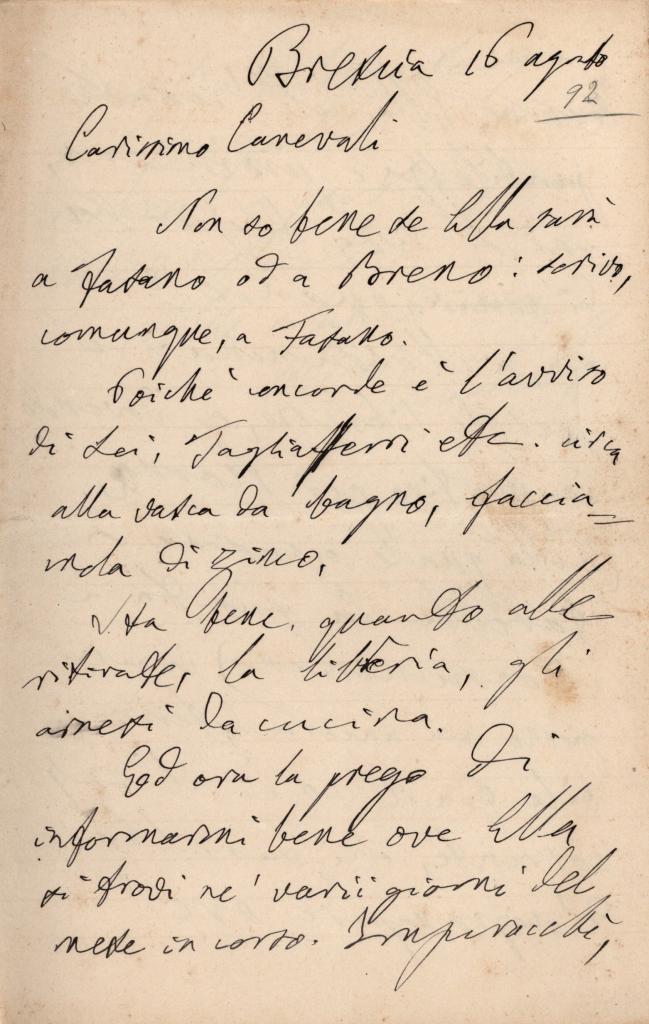 Brescia 16 agosto
92
Carissimo Canevali
Non so bene se Ella sarà
a Fasano od a Breno: scrivo,
comunque, a Fasano.
Poichè concorde è l'avviso
di Lei, Tagliaferri etc. circa
alla vasca da bagno, faccia=
mola di zinco.
Sta bene. quanto alle
ritirate, la libreria, gli
arnesi da cucina.
Ed ora la prego di
informarmi bene ove Ella
si trovi ne' varii giorni del
mese in corso.